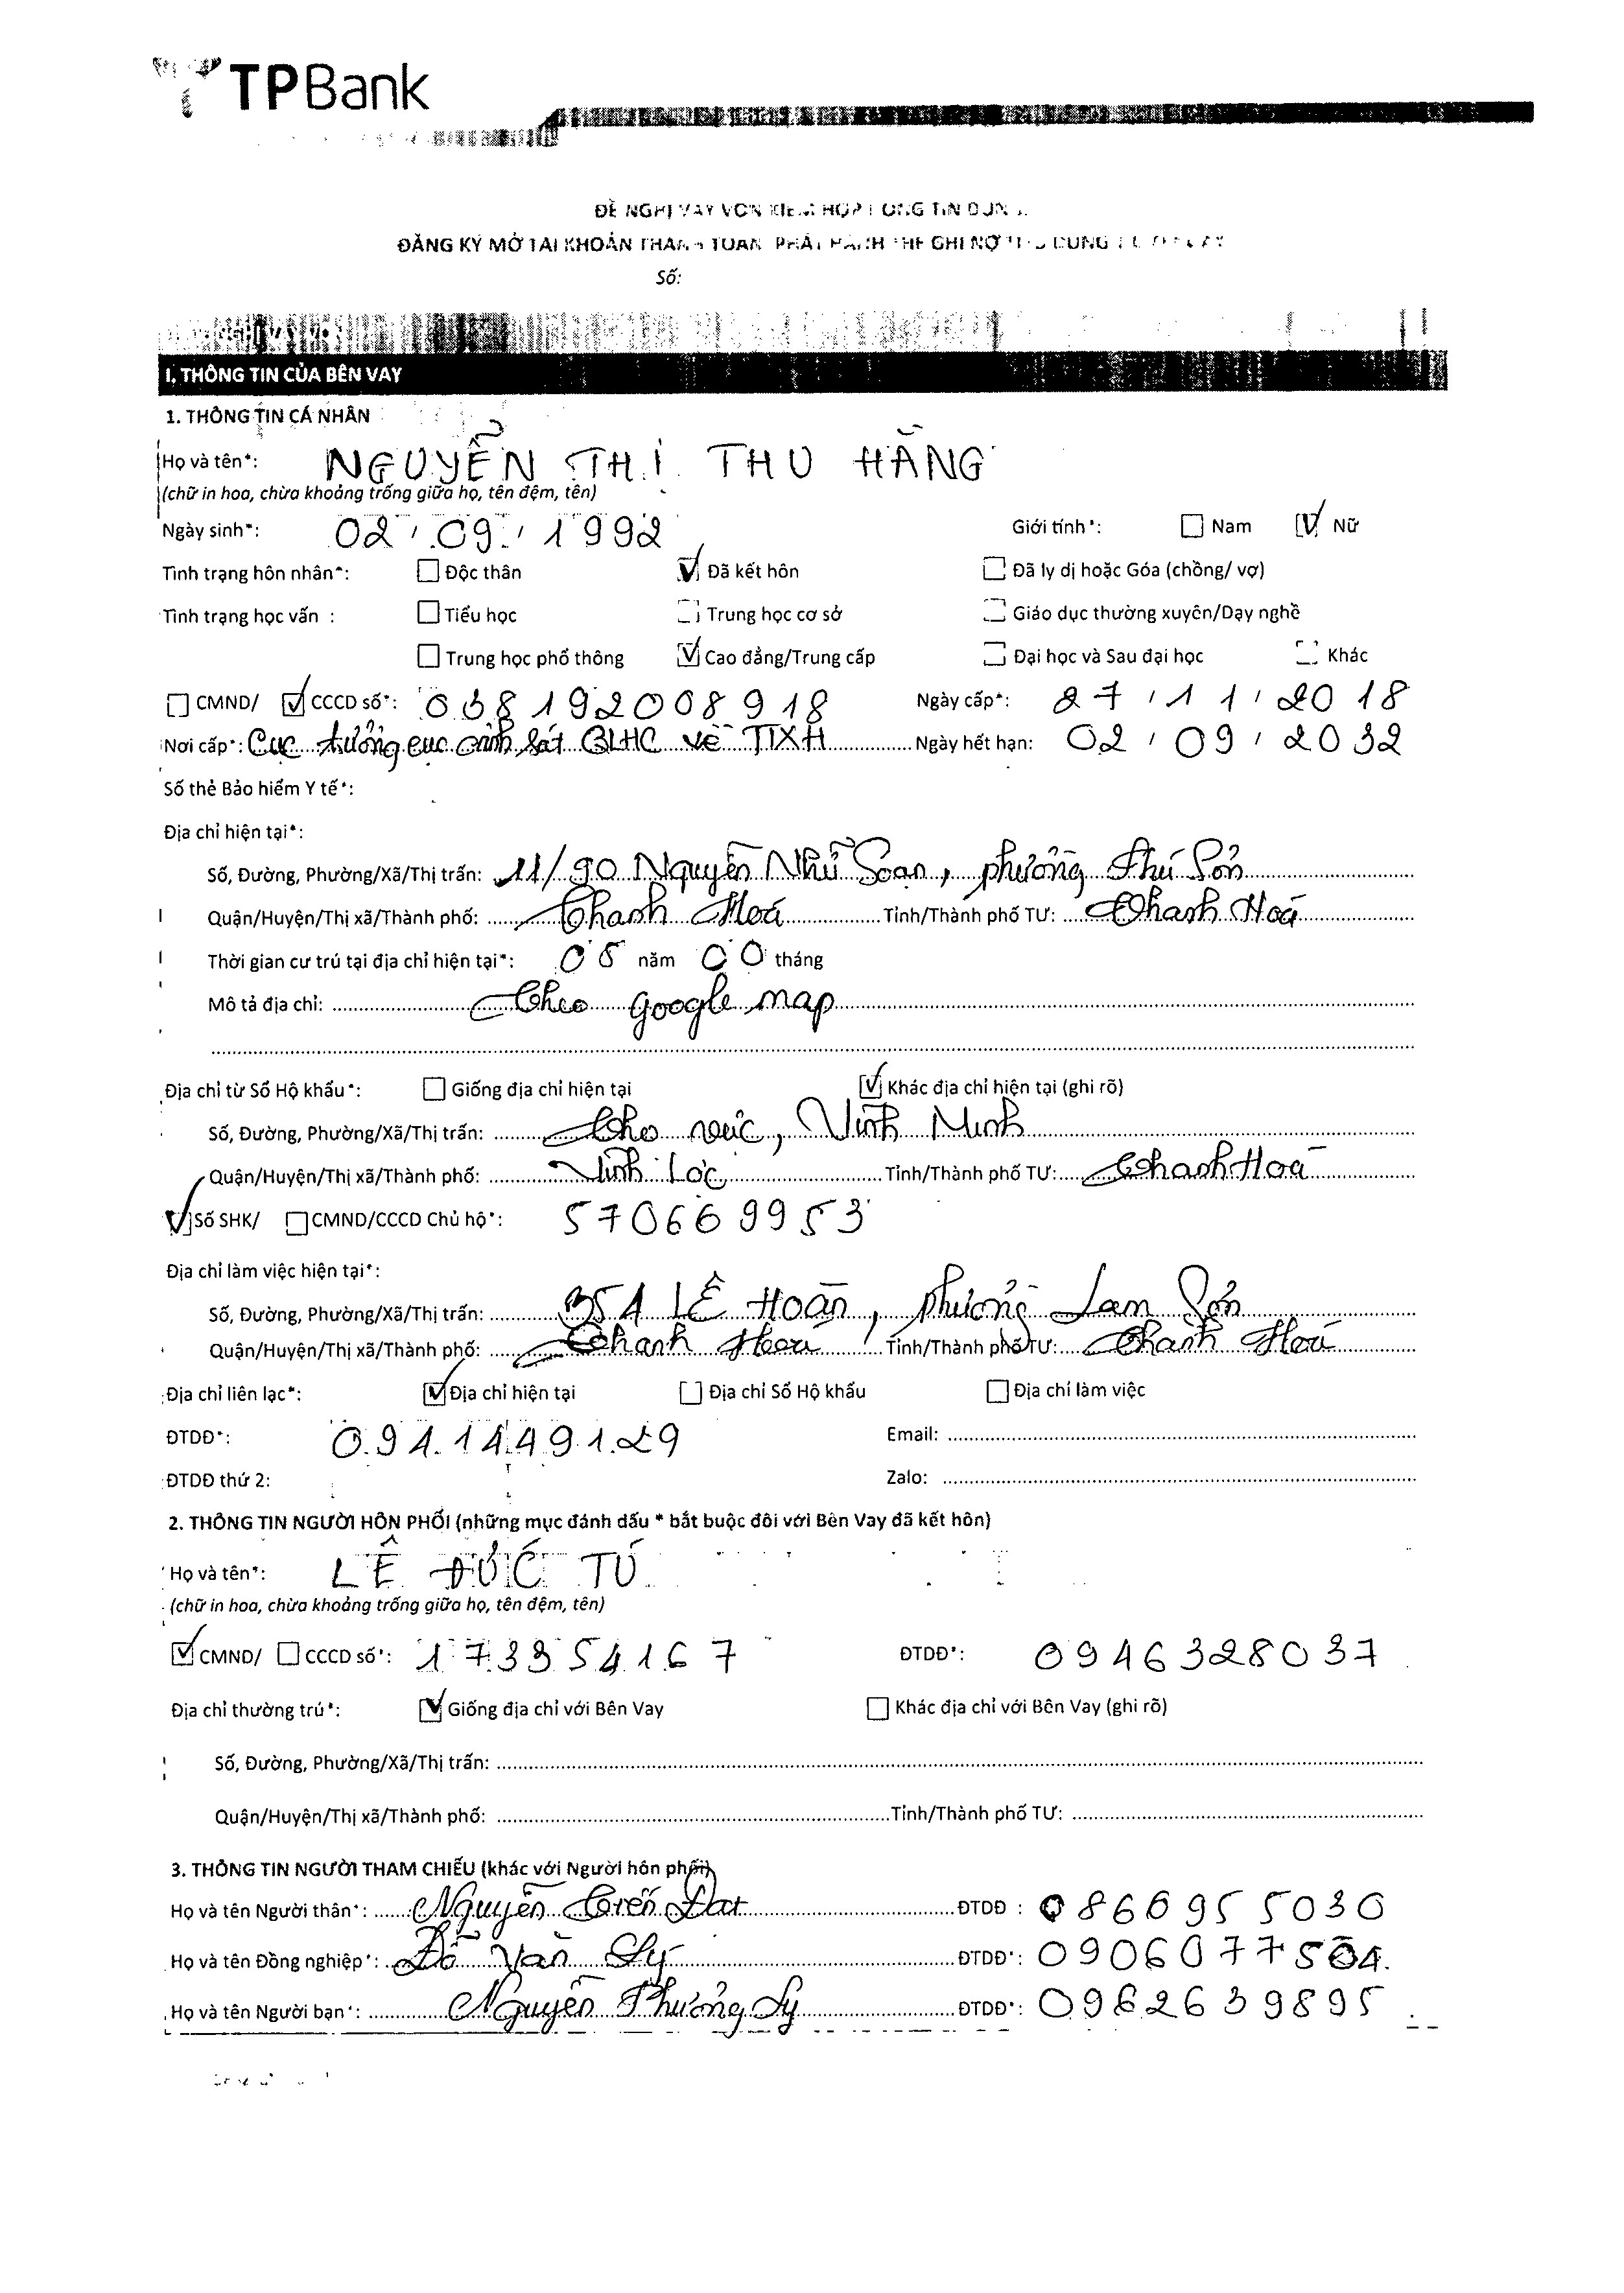 TPBank
ĐỀ NGHỊ VAY VỐN KIÊM HỢP ĐỒNG TÍN DỤNG
ĐĂNG KÝ MỞ TÀI KHOẢN THANH TOÁN PHÁT HÀNH THẺ GHI NỢ
Số:
I. THÔNG TIN CỦA BÊN VAY
1. THÔNG TIN CÁ NHÂN
Họ và tên*: NGUYỄN THỊ THU HẰNG
(chữ in hoa, chừa khoảng trống giữa họ, tên đệm, tên)
Ngày sinh*: 02 / 09 / 1992 Giới tính*: Nam Nữ
Tình trạng hôn nhân*: Độc thân Đã kết hôn Đã ly dị hoặc Góa (chồng/ vợ)
Tình trạng học vấn : Tiểu học Trung học cơ sở Giáo dục thường xuyên/Dạy nghề
Trung học phổ thông Cao đẳng/Trung cấp Đại học và Sau đại học Khác
CMND/ CCCD số*: 038192008918 Ngày cấp*: 27 / 11 / 2018
Nơi cấp*: Cục trưởng cục cảnh sát QLHC về TTXH Ngày hết hạn: 02 / 09 / 2032
Số thẻ Bảo hiểm Y tế*:
Địa chỉ hiện tại*:
Số, Đường, Phường/Xã/Thị trấn: 11/90 Nguyễn Như Soạn, phường Phú Sơn
Quận/Huyện/Thị xã/Thành phố: Thanh Hoá Tỉnh/Thành phố TƯ: Thanh Hoá
Thời gian cư trú tại địa chỉ hiện tại*: 05 năm 00 tháng
Mô tả địa chỉ: Theo google map
Địa chỉ từ Sổ Hộ khẩu*: Giống địa chỉ hiện tại Khác địa chỉ hiện tại (ghi rõ)
Số, Đường, Phường/Xã/Thị trấn: Thọ vực, Vĩnh Minh
Quận/Huyện/Thị xã/Thành phố: Vĩnh Lộc Tỉnh/Thành phố TƯ: Thanh Hoá
Số SHK/ CMND/CCCD Chủ hộ*: 570669953
Địa chỉ làm việc hiện tại*:
Số, Đường, Phường/Xã/Thị trấn: 35A LÊ Hoàn, phường Lam Sơn
Quận/Huyện/Thị xã/Thành phố: Thanh Hoá Tỉnh/Thành phố TƯ: Thanh Hoá
Địa chỉ liên lạc*: Địa chỉ hiện tại Địa chỉ Sổ Hộ khẩu Địa chỉ làm việc
ĐTDĐ*: 0941449129 Email:
ĐTDĐ thứ 2: Zalo:
2. THÔNG TIN NGƯỜI HÔN PHỐI (những mục đánh dấu * bắt buộc đối với Bên Vay đã kết hôn)
Họ và tên*: LÊ ĐỨC TÚ
(chữ in hoa, chừa khoảng trống giữa họ, tên đệm, tên)
CMND/ CCCD số*: 173354167 ĐTDĐ*: 0946328037
Địa chỉ thường trú*: Giống địa chỉ với Bên Vay Khác địa chỉ với Bên Vay (ghi rõ)
Số, Đường, Phường/Xã/Thị trấn:
Quận/Huyện/Thị xã/Thành phố: Tỉnh/Thành phố TƯ:
3. THÔNG TIN NGƯỜI THAM CHIẾU (khác với Người hôn phối)
Họ và tên Người thân*: Nguyễn Tiến Đạt ĐTDĐ : 0866955030
Họ và tên Đồng nghiệp*: Đỗ Văn Lý ĐTDĐ*: 0906077504
Họ và tên Người bạn*: Nguyễn Phương Lý ĐTDĐ*: 0962639895